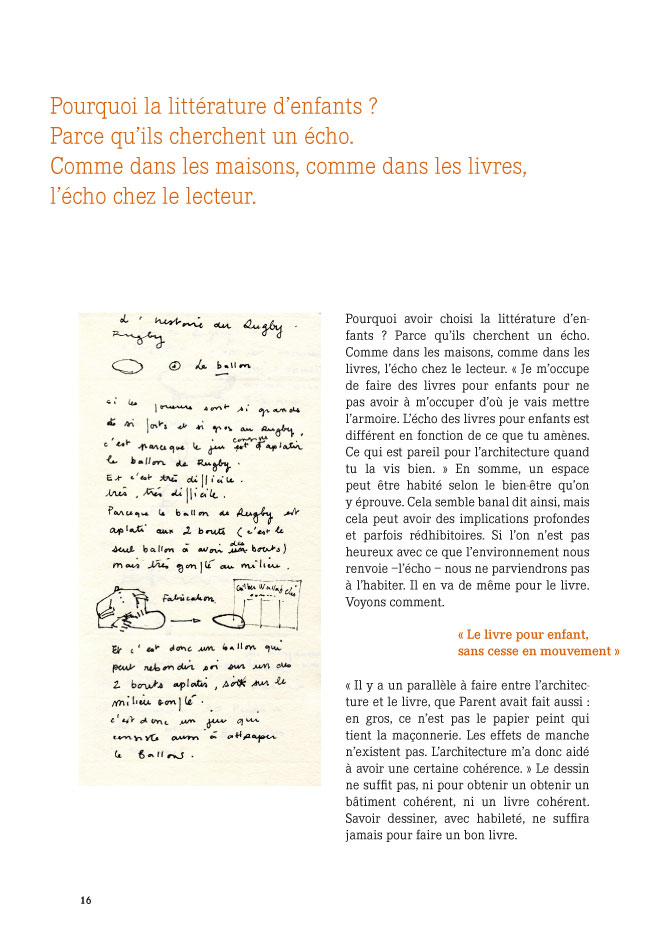 Pourquoi la littérature d’enfants ?
Parce qu’ils cherchent un écho.
Comme dans les maisons, comme dans les livres,
l’écho chez le lecteur.
L'histoire du Rugby.
Rugby
Le ballon
si les joueurs sont si grands
et si forts et si gros au Rugby,
c'est parce que le jeu consiste d'aplatir
le ballon de Rugby.
Et c'est très difficile.
très, très difficile.
Parceque le ballon de Rugby est
aplati aux 2 bouts (c'est le
seul ballon à avoir des bouts)
mais très gonflé au milieu.
Fabrication
Et c'est donc un ballon qui
peut rebondir soi sur un des
2 bouts aplatis, soit sur le
milieu gonflé.
c'est donc un jeu qui
consiste aussi à attraper
le Ballons.
Pourquoi avoir choisi la littérature d’en-
fants ? Parce qu’ils cherchent un écho.
Comme dans les maisons, comme dans les
livres, l’écho chez le lecteur. « Je m’occupe
de faire des livres pour enfants pour ne
pas avoir à m’occuper d’où je vais mettre
l’armoire. L’écho des livres pour enfants est
différent en fonction de ce que tu amènes.
Ce qui est pareil pour l’architecture quand
tu la vis bien. » En somme, un espace
peut être habité selon le bien-être qu’on
y éprouve. Cela semble banal dit ainsi, mais
cela peut avoir des implications profondes
et parfois rédhibitoires. Si l’on n’est pas
heureux avec ce que l’environnement nous
renvoie –l’écho – nous ne parviendrons pas
à l’habiter. Il en va de même pour le livre.
Voyons comment.
« Le livre pour enfant,
sans cesse en mouvement »
« Il y a un parallèle à faire entre l’architec-
ture et le livre, que Parent avait fait aussi :
en gros, ce n’est pas le papier peint qui
tient la maçonnerie. Les effets de manche
n’existent pas. L’architecture m’a donc aidé
à avoir une certaine cohérence. » Le dessin
ne suffit pas, ni pour obtenir un obtenir un
bâtiment cohérent, ni un livre cohérent.
Savoir dessiner, avec habileté, ne suffira
jamais pour faire un bon livre.
16